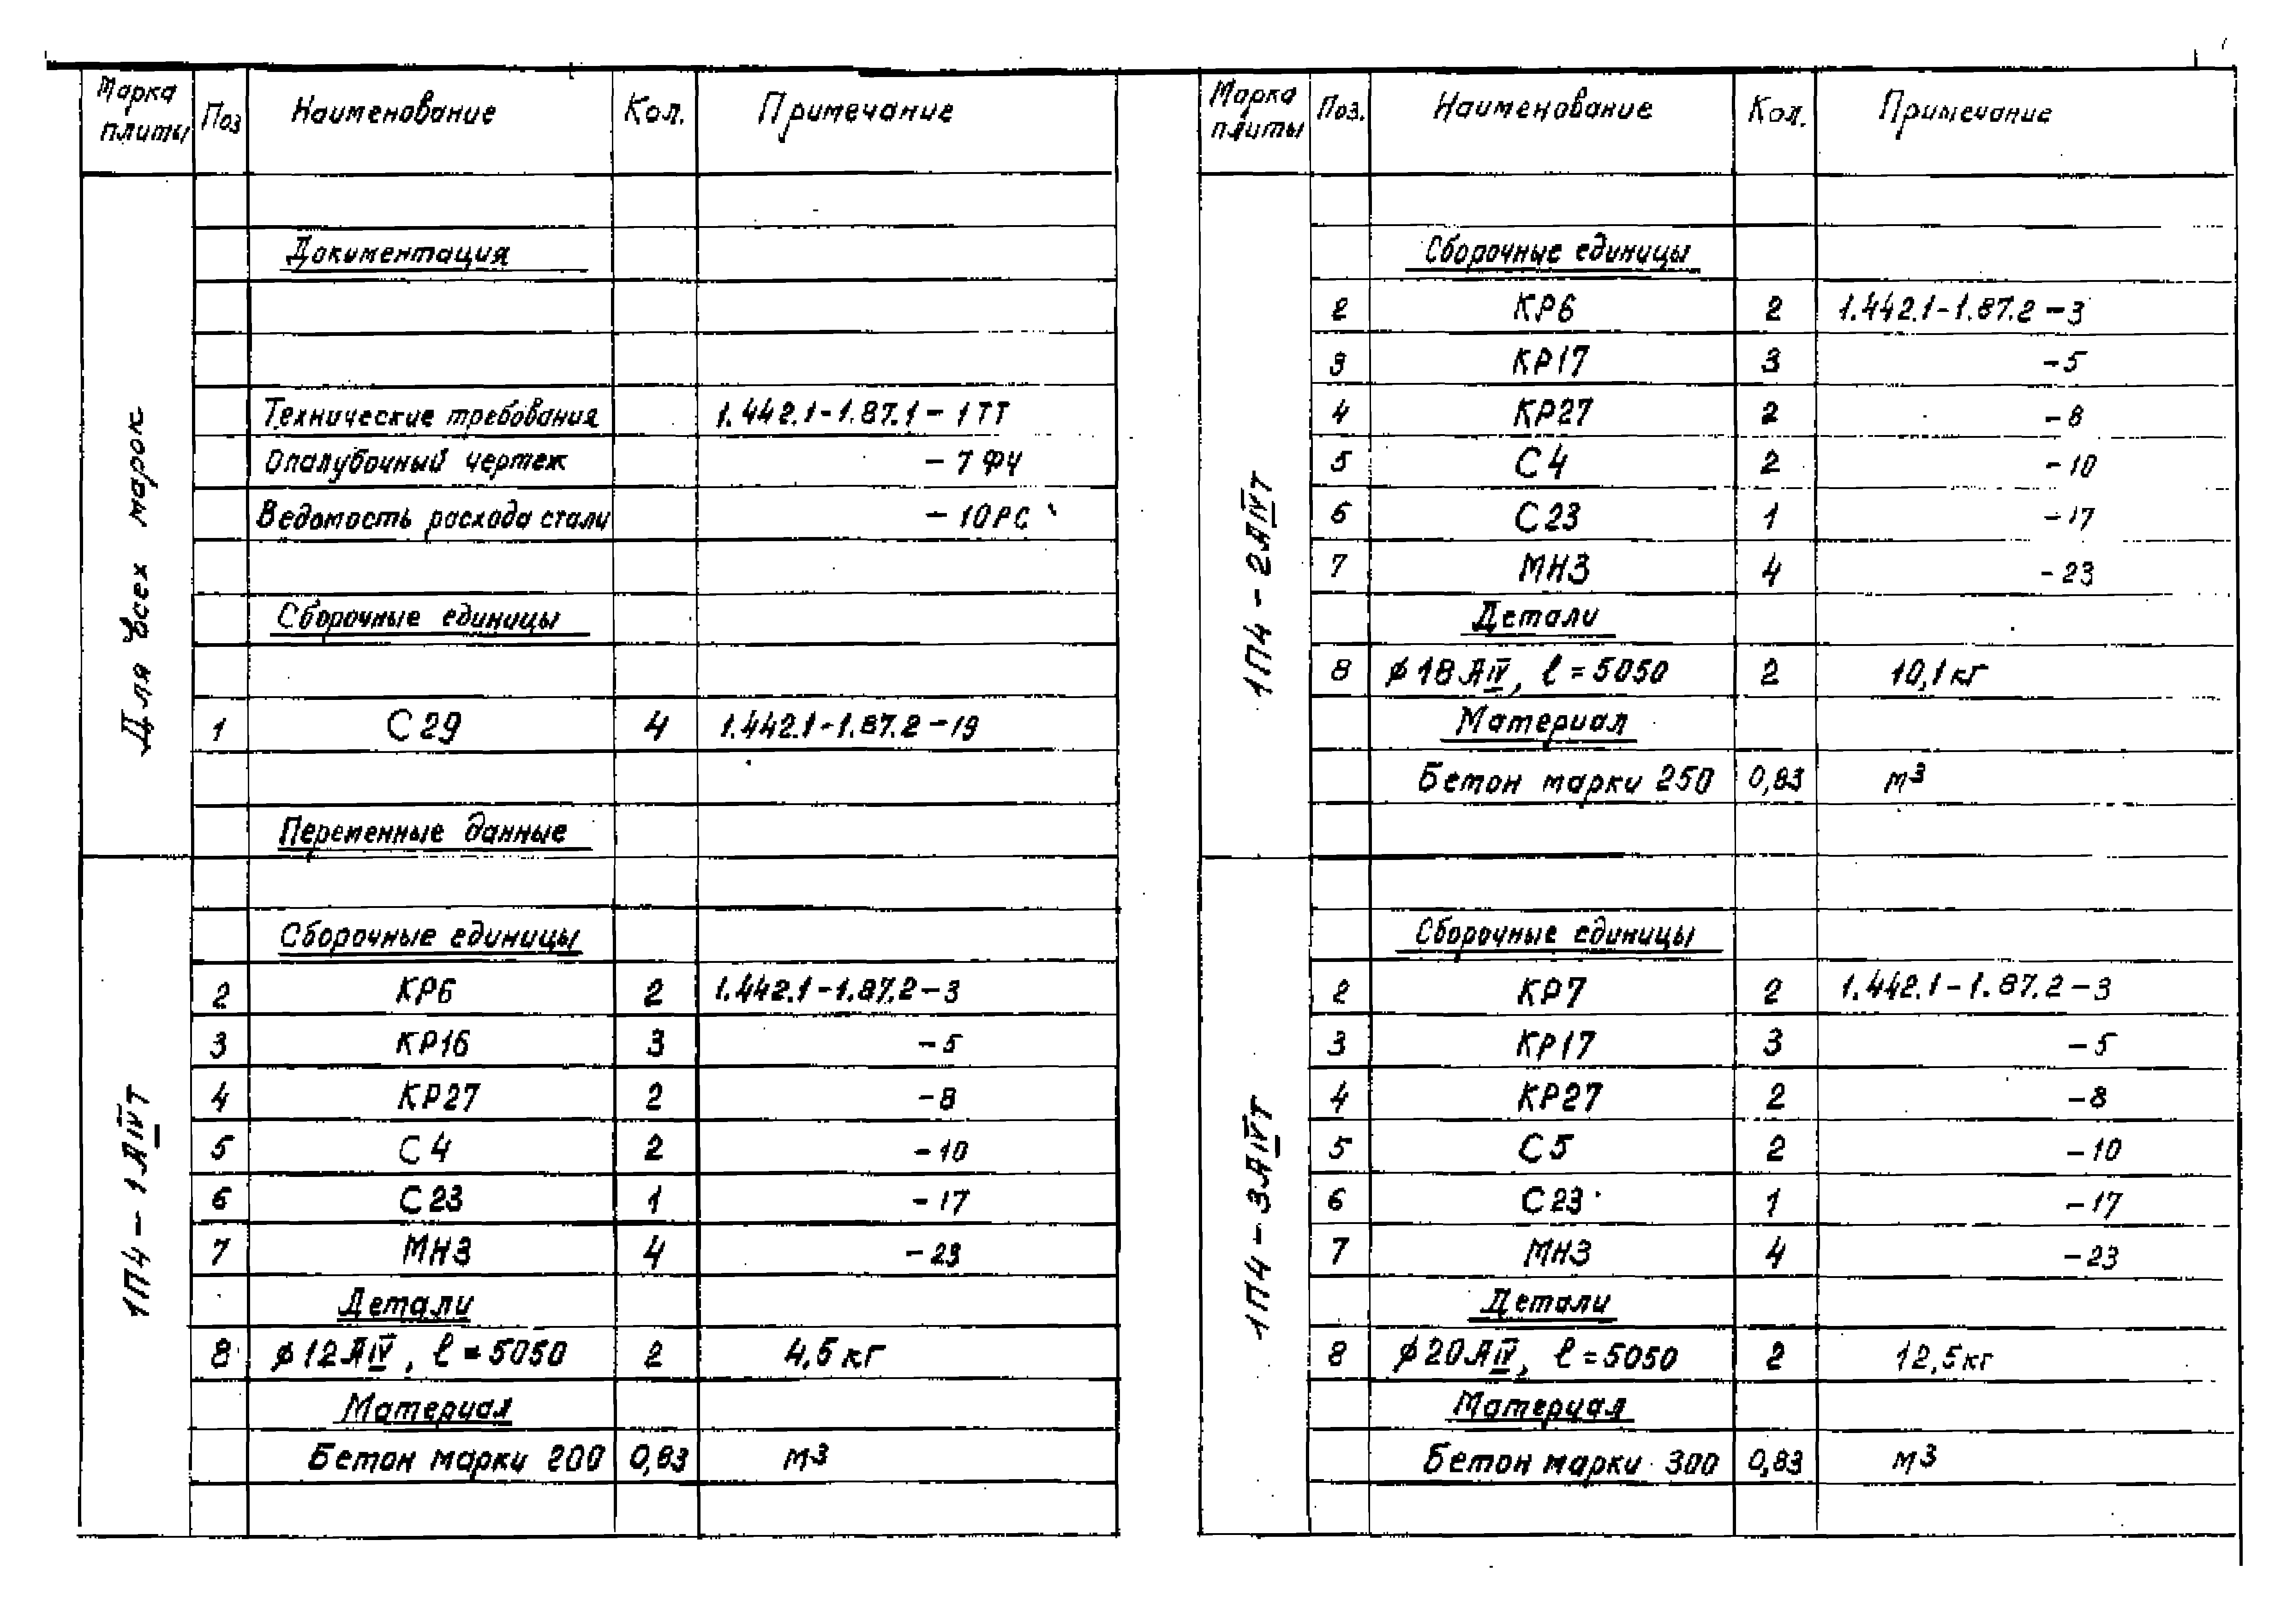 Марка плиты Поз Наименование Кол. Примечание
Для всех марок
Документация
Технические требования 1.442.1-1.87.1-1ТТ
Опалубочный чертеж -7ФЧ
Ведомость расхода стали -10РС
Сборочные единицы
1 С29 4 1.442.1-1.87.2-19
Переменные данные
1П4-1АIVТ
Сборочные единицы
2 КР6 2 1.442.1-1.87.2-3
3 КР16 3 -5
4 КР27 2 -8
5 С4 2 -10
6 С23 1 -17
7 МН3 4 -23
Детали
8 ⌀12АIV, ℓ=5050 2 4,5кг
Материал
Бетон марки 200 0,83 м3
Марка плиты Поз. Наименование Кол. Примечание
1П4-2АIVТ
Сборочные единицы
2 КР6 2 1.442.1-1.87.2-3
3 КР17 3 -5
4 КР27 2 -8
5 С4 2 -10
6 С23 1 -17
7 МН3 4 -23
Детали
8 ⌀18АIV, ℓ=5050 2 10,1кг
Материал
Бетон марки 250 0,83 м3
1П4-3АIVТ
Сборочные единицы
2 КР7 2 1.442.1-1.87.2-3
3 КР17 3 -5
4 КР27 2 -8
5 С5 2 -10
6 С23 1 -17
7 МН3 4 -23
Детали
8 ⌀20АIV, ℓ=5050 2 12,5кг
Материал
Бетон марки 300 0,83 м3